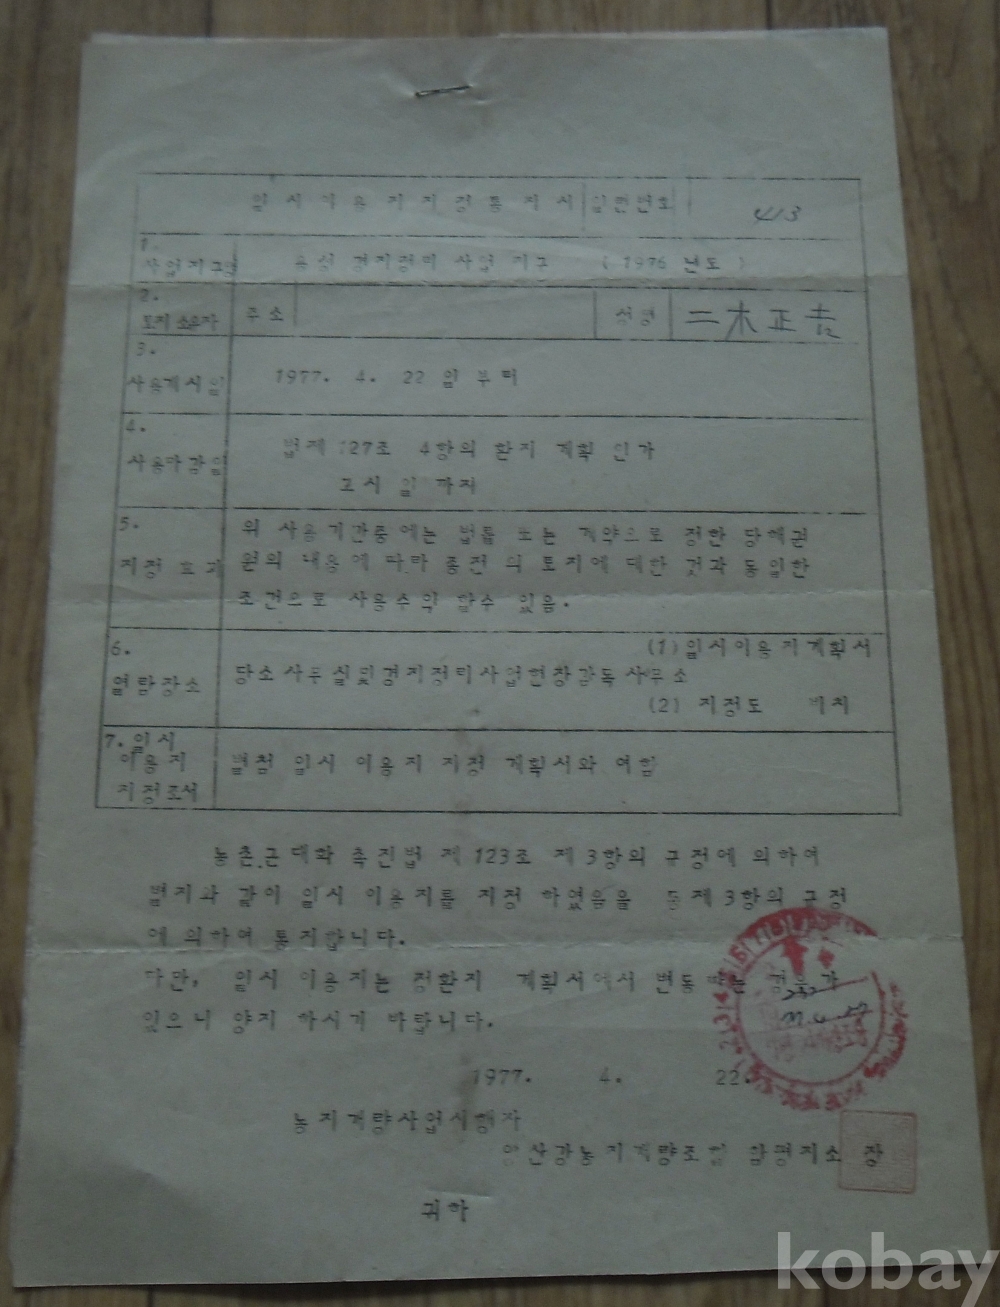 일시이용지지정통지서 일련번호 413
1.
사업지구명 용성 경지정리 사업 지구 (1976 년도)
2.
토지소유자 주소 성명 二木正吉
3.
사용개시일 1977. 4. 22 일 부터
4.
사용마감일 법제 127조 4항의 환지 계획 인가
고시 일 까지
5. 위 사용기간중에는 법률 또는 계약으로 정한 당해권
지정효과 원의 내용에 따라 종전의 토지에 대한 것과 동일한
조건으로 사용수익 할수 있음.
6. (1) 일시이용지계획서
열람장소 당소사무실및경지정리사업현장감독사무소
(2) 지정도 비치
7. 일시
이용지 별첨 일시 이용지 지정 계획서와 여함
지정조서
농촌근대화 촉진법 제123조 제3항의 규정에 의하여
별지와 같이 일시 이용지를 지정 하였음을 동제3항의 규정
에 의하여 통지합니다.
다만, 일시 이용지는 정환지 계획서에서 변동 되는 경우가
있으니 양지 하시기 바랍니다.
1977. 4. 22.
농지개량사업시행자
영산강농지개량조합 함평지소 장
귀하
kobay